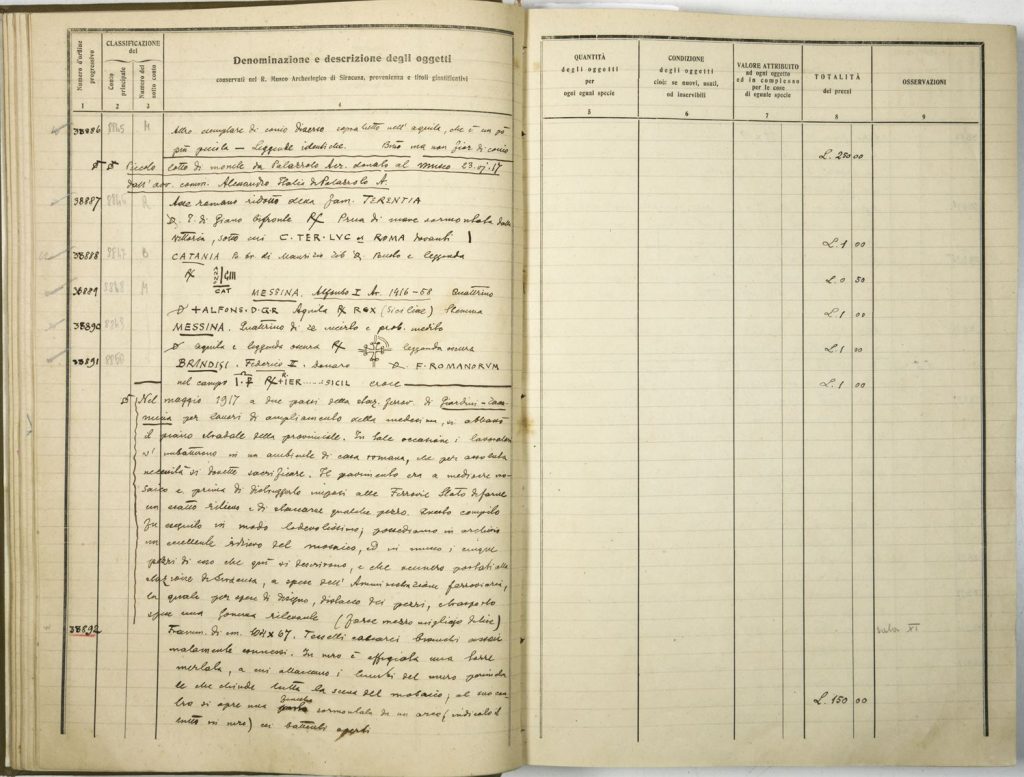 Numero d'ordine progressivo
CLASSIFICAZIONE
del
Conto principale
Numero del sotto conto
Denominazione e descrizione degli oggetti
conservati nel R. Museo Archeologico di Siracusa, provenienza e titoli giustificativi
1 2 3 4
38886 8845 M Altro esemplare di conio diverso sopratutto nell'aquila, che è un pò
più piccola – Leggende identiche. Bno ma non fior di conio
Piccolo lotto di monete da Palazzolo Acr. donato al museo 23.VI.17
dall'avv. comm. Alessandro Italia di Palazzolo A.
38887 R Asse romano ridotto della fam. TERENTIA
D. T. di Giano bifronte R/ Prua di nave sormontata dalla
Vittoria, sotto cui C·TER·LVC et ROMA davanti I
38888 8847 B CATANIA Br. di Maurizio D. Busto e leggenda
R/ ANN CAT
38889 8848 M MESSINA. Alfonso I Ar. 1416-58 Quattrino
D +ALFONS·D·G·R Aquila R/ REX (Siciliae) Stemma
38890 8849 MESSINA. Quattrino di re incerto e prob. inedito
D aquila e leggenda oscura R/ leggenda oscura
38891 8850 BRINDISI. Federico I. denaro D. F. ROMANORVM
nel campo R/ +IER......SICIL croce
Nel maggio 1917 a due passi della staz. ferrov. di Giardini-Taormina
per lavori di ampliamento della medesima, si abbassò
il piano stradale della provinciale. In tale occasione i lavoratori
s'imbatterono in un ambiente di casa romana, che per assoluta
necessità si dovette sacrificare. Il pavimento era a mediocre mosaico
e prima di distruggerlo imposi alle Ferrovie Stato di farne
un esatto rilievo e di staccarne qualche pezzo. Questo compito
fu eseguito in modo lodevolissimo; possediamo in archivio
un eccellente rilievo del mosaico, ed in museo i cinque
pezzi di esso che qui si descrivono, e che vennero portati alla
stazione di Siracusa, a spese dell'Amministrazione ferroviaria,
la quale per spese di disegno, distacco dei pezzi, e trasporto
spese una somma rilevante (forse mezzo migliajo di lire)
38892 Framm. di cm. 104 x 67. Tesselli calcarei bianchi assai
malamente connessi. In nero è effigiata una torre
merlata, a cui attaccano i lembi del muro
che chiude tutta la scena del mosaico; al suo centro
si apre una finestra sormontata da un arco (indicato il
tutto in nero) coi battenti aperti
QUANTITÀ
degli oggetti
per
ogni egual specie
CONDIZIONE
degli oggetti
cioè: se nuovi, usati,
od inservibili
VALORE ATTRIBUITO
ad ogni oggetto
ed in complesso
per le cose
di eguale specie
TOTALITÀ
dei prezzi
OSSERVAZIONI
5 6 7 8 9
L. 250 00
L. 1 00
L. 0 50
L. 1 00
L. 1 00
L. 1 00
sala XI
L. 150 00